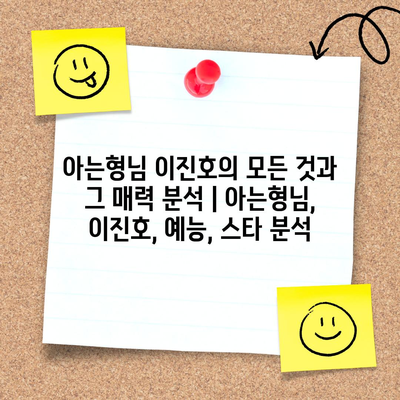 아는형님 이진호의 모든 것과
그 매력 분석 | 아는형님,
이진호, 예능, 스타 분석